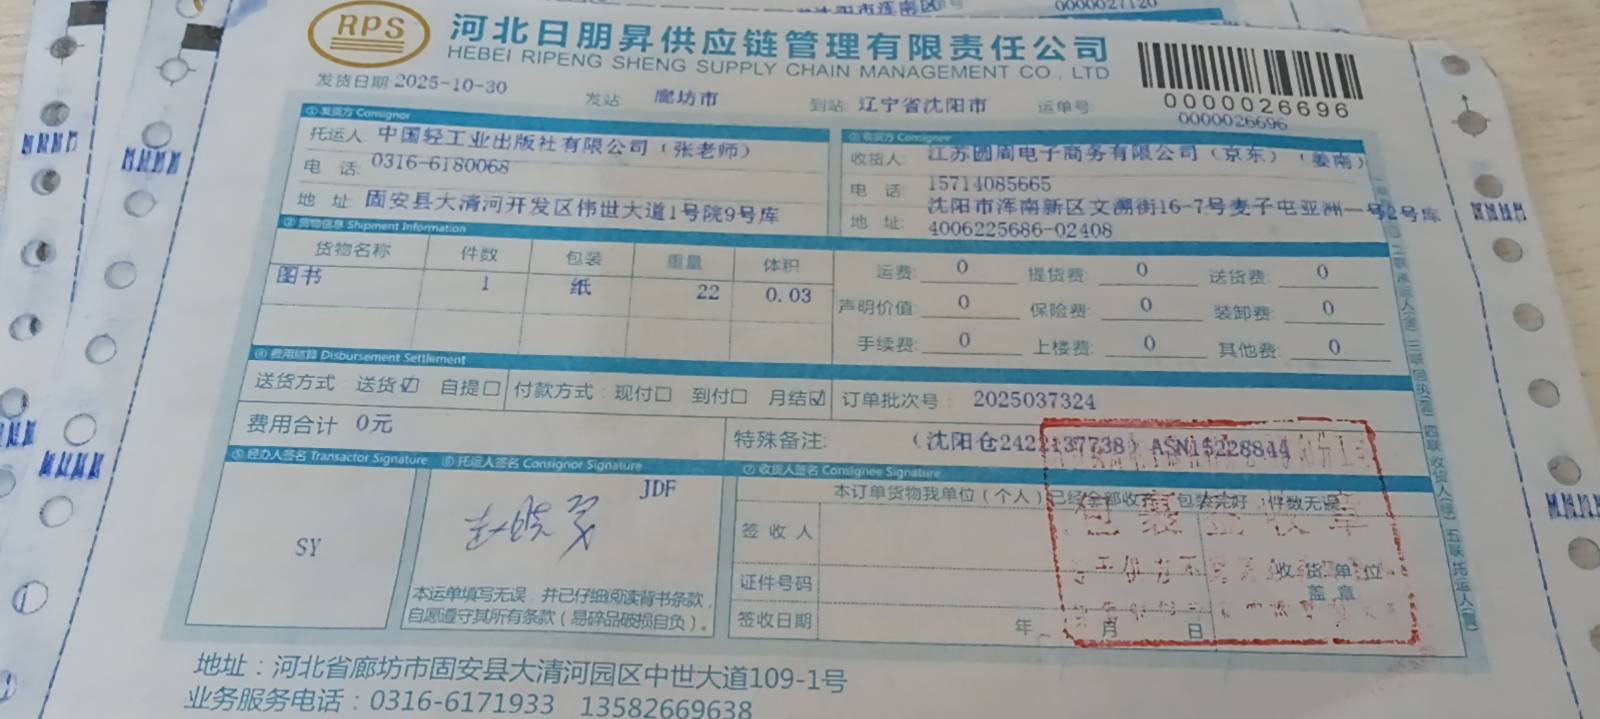 RPS
河北日朋昇供应链管理有限责任公司
HEBEI RIPENG SHENG SUPPLY CHAIN MANAGEMENT CO., LTD
0000026696
0000026696
发货日期 2025-10-30 发站 廊坊市 到站 辽宁省沈阳市 运单号
①发货方 Consignor
托运人 中国轻工业出版社有限公司（张老师）
电 话 0316-6180068
地 址 固安县大清河开发区伟世大道1号院9号库
②收货方 Consignee
收货人: 江苏圆周电子商务有限公司（京东）（姜南）
电 话: 15714085665
地 址: 沈阳市浑南新区文溯街16-7号麦子屯亚洲一号2号库
4006225686-02408
③货物信息 Shipment Information
货物名称 件数 包装 重量 体积
图书 1 纸 22 0.03
运费: 0 提货费: 0 送货费: 0
声明价值: 0 保险费: 0 装卸费: 0
手续费: 0 上楼费: 0 其他费: 0
④费用结算 Disbursement Settlement
送货方式: 送货☑ 自提□ 付款方式: 现付□ 到付□ 月结☑ 订单批次号: 2025037324
费用合计 0元 特殊备注: （沈阳仓2422137738）ASN15228844
⑤经办人签名 Transactor Signature
SY
⑥托运人签名 Consignor Signature
JDF
本运单填写无误，并已仔细阅读背书条款，
自愿遵守其所有条款（易碎品破损自负）。
⑦收货人签名 Consignee Signature
本订单货物我单位（个人）已经全部收齐，包装完好，件数无误。
签 收 人
证件号码
签收日期 年 月 日
收 货 单 位
盖 章
地址：河北省廊坊市固安县大清河园区中世大道109-1号
业务服务电话：0316-6171933 13582669638